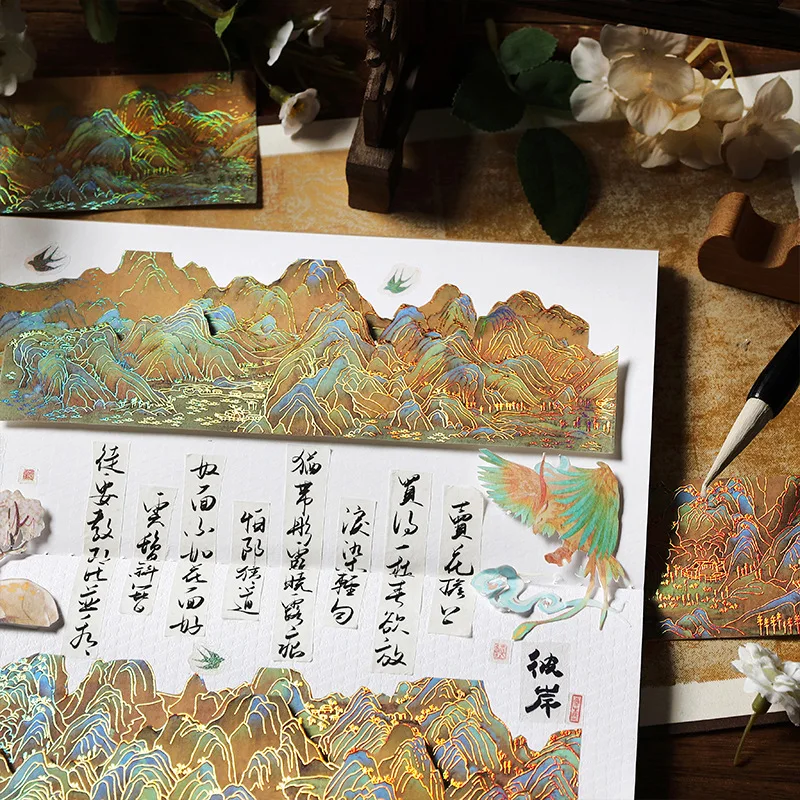 賣花擔上
買得一枝春欲放
淚染輕勻
猶帶彤霞曉露痕
怕郎猜道
奴面不如花面好
雲鬢斜簪
徒要教郎比並看
彼岸